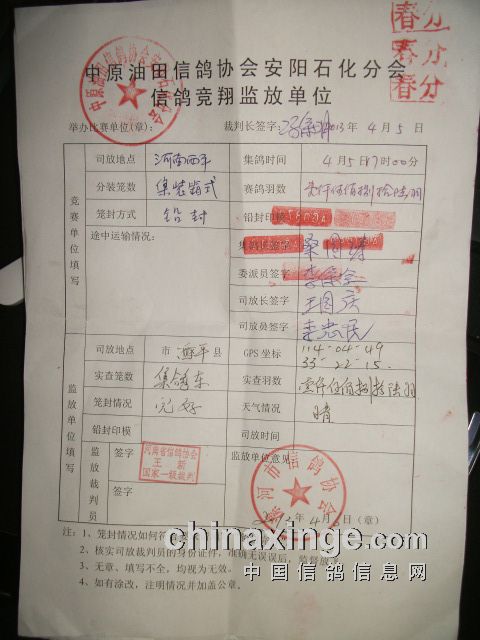 春分
春分
春分
中原油田信鸽协会安阳石化分会
信鸽竞翔监放单位
举办比赛单位(章): 裁判长签字: 2013年4月5日
竞赛单位填写
司放地点 河南西平 集鸽时间 4月5日17时00分
分装笼数 集装箱式 赛鸽羽数 壹仟伍佰捌拾陆羽
笼封方式 铅封 铅封印模
途中运输情况: 集鸽长签字
委派员签字
司放长签字 王国庆
司放员签字
监放单位填写
司放地点 市西平县 GPS坐标 114-04-49
33-22-15
实查笼数 集鸽车 实查羽数 壹仟伍佰捌拾陆羽
笼封情况 完好 天气情况 晴
铅封印模 司放时间
监放裁判员 签字 河南省信鸽协会
王新
国家一级裁判
监放单位意见
签字
年4月 日(章)
漯河市信鸽协会
注: 1、笼封情况如何符
2、核实司放裁判员的身份证件，准确无误后，监督放
3、无章、填写不全，均视为无效。
4、如有涂改，注明情况并加盖公章。
chinaxinge.com
中国信鸽信息网